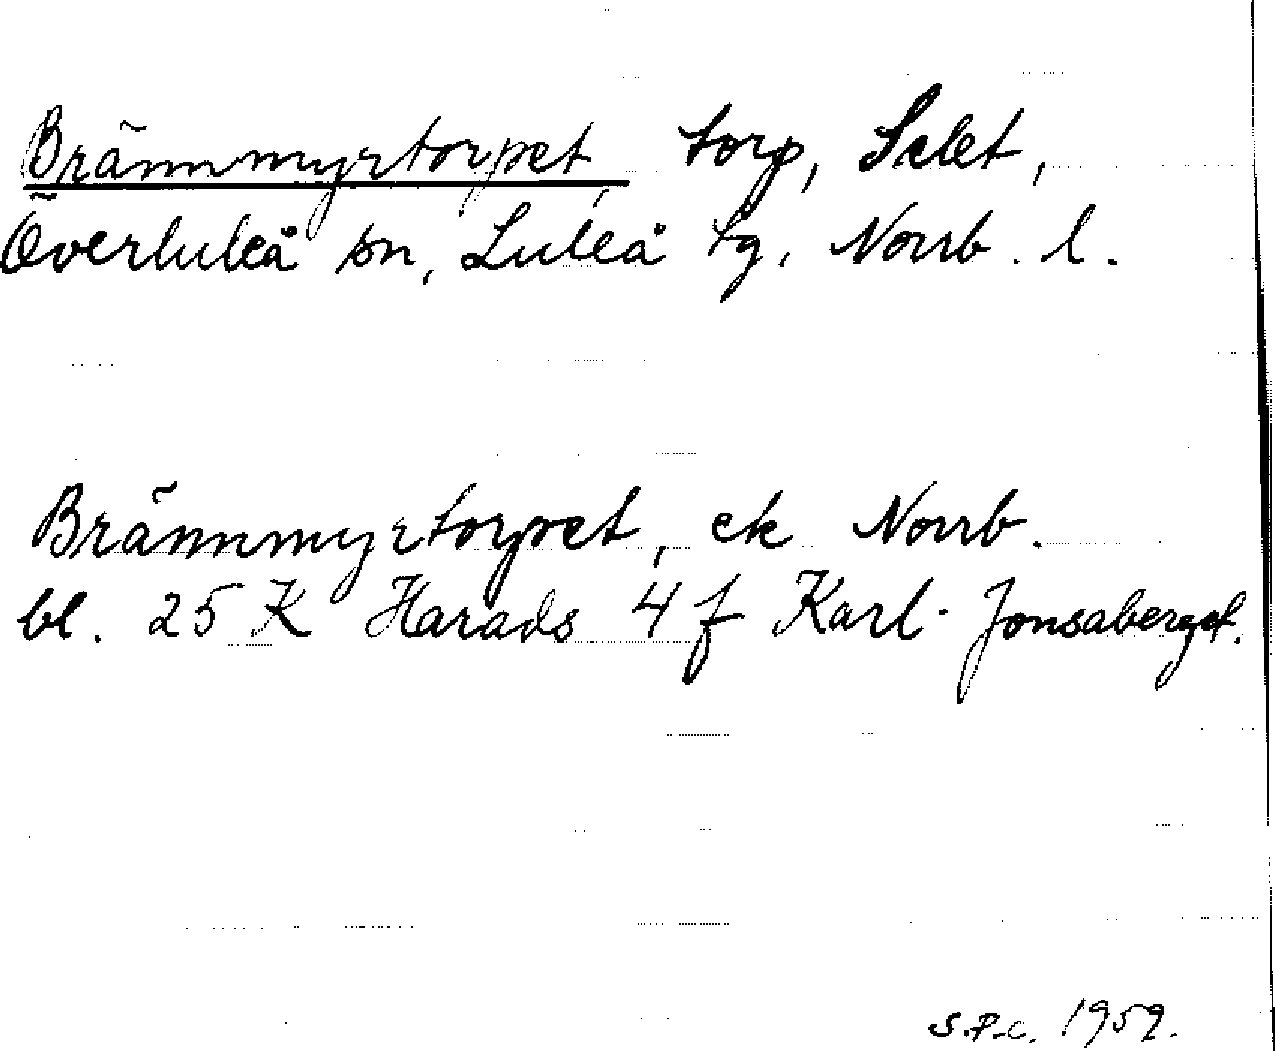 Brännmyrtorpet, torp, Selet,
Överluleå sn, Luleå tg, Norrb. l.
Brännmyrtorpet, ek Norrb.
bl. 25 K Harads 4 f Karl-Jonsaberget.
S.P.C. 1959.